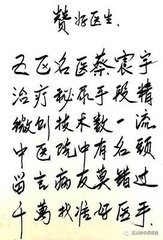 赞好医生
五区名医蔡宸宇
治疗秘尿手段精
微创技术数一流
中医院中有名颜
留言病友莫错过
千万找准好医手